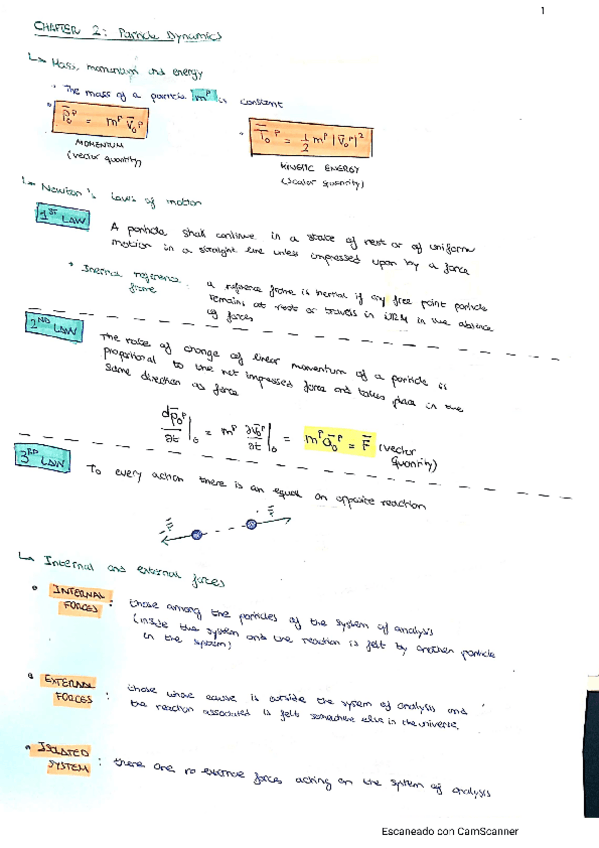 1
CHAPTER 2: Particle Dynamics
↳ Mass, momentum and energy
• The mass of a particle m^P is constant
• p̄₀^P = m^P v̄₀^P
MOMENTUM
(vector quantity)
• T₀^P = 1/2 m^P |v̄₀^P|²
KINETIC ENERGY
(scalar quantity)
↳ Newton's laws of motion
1ST LAW
A particle shall continue in a state of rest or of uniform
motion in a straight line unless impressed upon by a force
• Inertial reference frame :
a reference frame is inertial if any free point particle
remains at rest or travels in URM in the absence
of forces
2ND LAW
The rate of change of linear momentum of a particle is
proportional to the net impressed force and takes place in the
same direction as force
dp̄₀^P/dt |₀ = m^P dv̄₀^P/dt |₀ = m^P ā₀^P = F̄ (vector quantity)
3RD LAW
To every action there is an equal an opposite reaction
↳ Internal and external forces
• INTERNAL FORCES :
those among the particles of the system of analysis
(inside the system and the reaction is felt by another particle
in the system)
• EXTERNAL FORCES :
those whose cause is outside the system of analysis and
the reaction associated is felt somewhere else in the universe.
• ISOLATED SYSTEM :
there are no external forces acting on the system of analysis
Escaneado con CamScanner